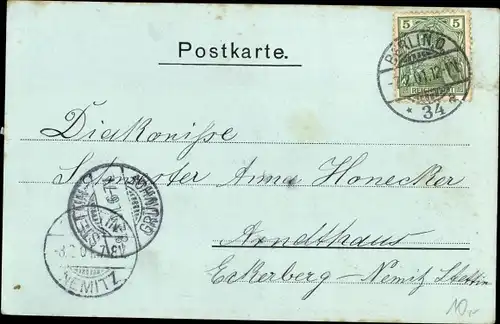 Postkarte.
5 5
REICHSPOST
BERLIN O.
* 34 a
Diakonisse
Schwester Anna Honecker
Arndthaus
Eckerberg - Nemitz Stettin
STETTIN
GRÜNHOF
NEMITZ
10,-